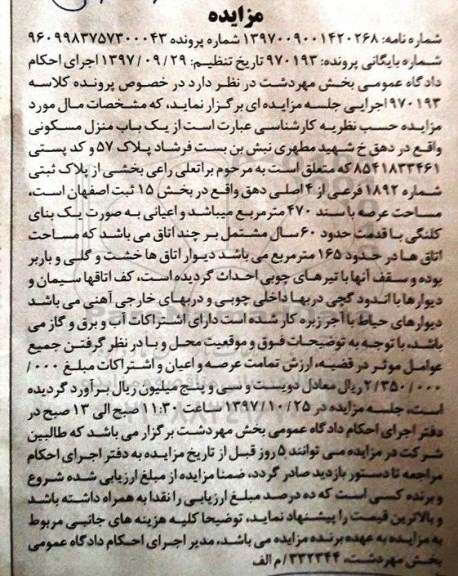 مزایده
شماره نامه: ۱۳۹۷۰۰۹۰۰۱۴۲۰۲۶۸ شماره پرونده ۹۶۰۹۹۸۳۷۵۷۳۰۰۰۴۳
شماره بایگانی پرونده: ۹۷۰۱۹۳ تاریخ تنظیم: ۱۳۹۷/۰۹/۲۹ اجرای احکام
دادگاه عمومی بخش مهردشت در نظر دارد در خصوص پرونده کلاسه
۹۷۰۱۹۳ اجرایی جلسه مزایده ای برگزار نماید، که مشخصات مال مورد
مزایده حسب نظریه کارشناسی عبارت است از یک باب منزل مسکونی
واقع در دهق خ شهید مطهری نبش بن بست فرشاد پلاک ۵۷ و کد پستی
۸۵۴۱۸۳۳۴۶۱ که متعلق است به مرحوم براتعلی راعی بخشی از پلاک ثبتی
شماره ۱۸۹۲ فرعی از ۴ اصلی دهق واقع در بخش ۱۵ ثبت اصفهان است،
مساحت عرصه با سند ۴۷۰ متر مربع میباشد و اعیانی به صورت یک بنای
کلنگی با قدمت حدود ۶۰ سال مشتمل بر چند اتاق می باشد که مساحت
اتاق ها در حدود ۱۶۵ مترمربع می باشد دیوار اتاق ها خشت و گلی و باربر
بوده و سقف آنها با تیرهای چوبی احداث گردیده است، کف اتاقها سیمان و
دیوارها با اندود گچی دربها داخلی چوبی و دربهای خارجی آهنی می باشد
دیوارهای حیاط با آجر زبره کار شده است دارای اشتراکات آب و برق و گاز می
باشد، با توجه به توضیحات فوق و موقعیت محل و با در نظر گرفتن جمیع
عوامل موثر در قضیه، ارزش تمامت عرصه و اعیان و اشتراکات مبلغ ۰۰۰/
۲/۳۵۰/۰۰۰ ریال معادل دویست و سی و پنج میلیون ریال برآورد گردیده
است، جلسه مزایده در ۱۳۹۷/۱۰/۲۵ ساعت ۱۱:۳۰ صبح الی ۱۳ صبح در
دفتر اجرای احکام دادگاه عمومی بخش مهردشت برگزار می باشد که طالبین
شرکت در مزایده می توانند ۵ روز قبل از تاریخ مزایده به دفتر اجرای احکام
مراجعه تا دستور بازدید صادر گردد، ضمنا مزایده از مبلغ ارزیابی شده شروع
و برنده کسی است که ده درصد مبلغ ارزیابی را نقدا به همراه داشته باشد
و بالاترین قیمت را پیشنهاد نماید، توضیحا کلیه هزینه های جانبی مربوط
به مزایده به عهده برنده مزایده می باشد، مدیر اجرای احکام دادگاه عمومی
بخش مهردشت، ۳۳۲۳۴۴/م الف